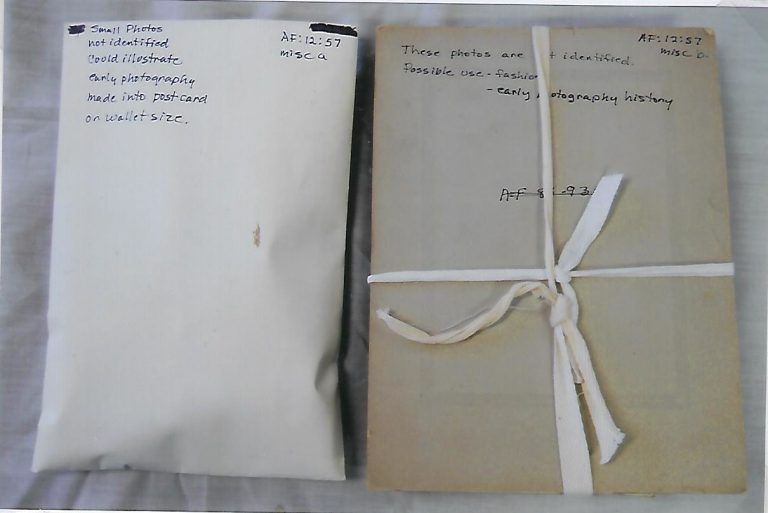 Small Photos
not identified
Could illustrate
early photography
made into postcard
or wallet size.
AF:12:57
misc a
AF:12:57
misc b.
These photos are identified.
Possible use - fashion
- early photography history
AF